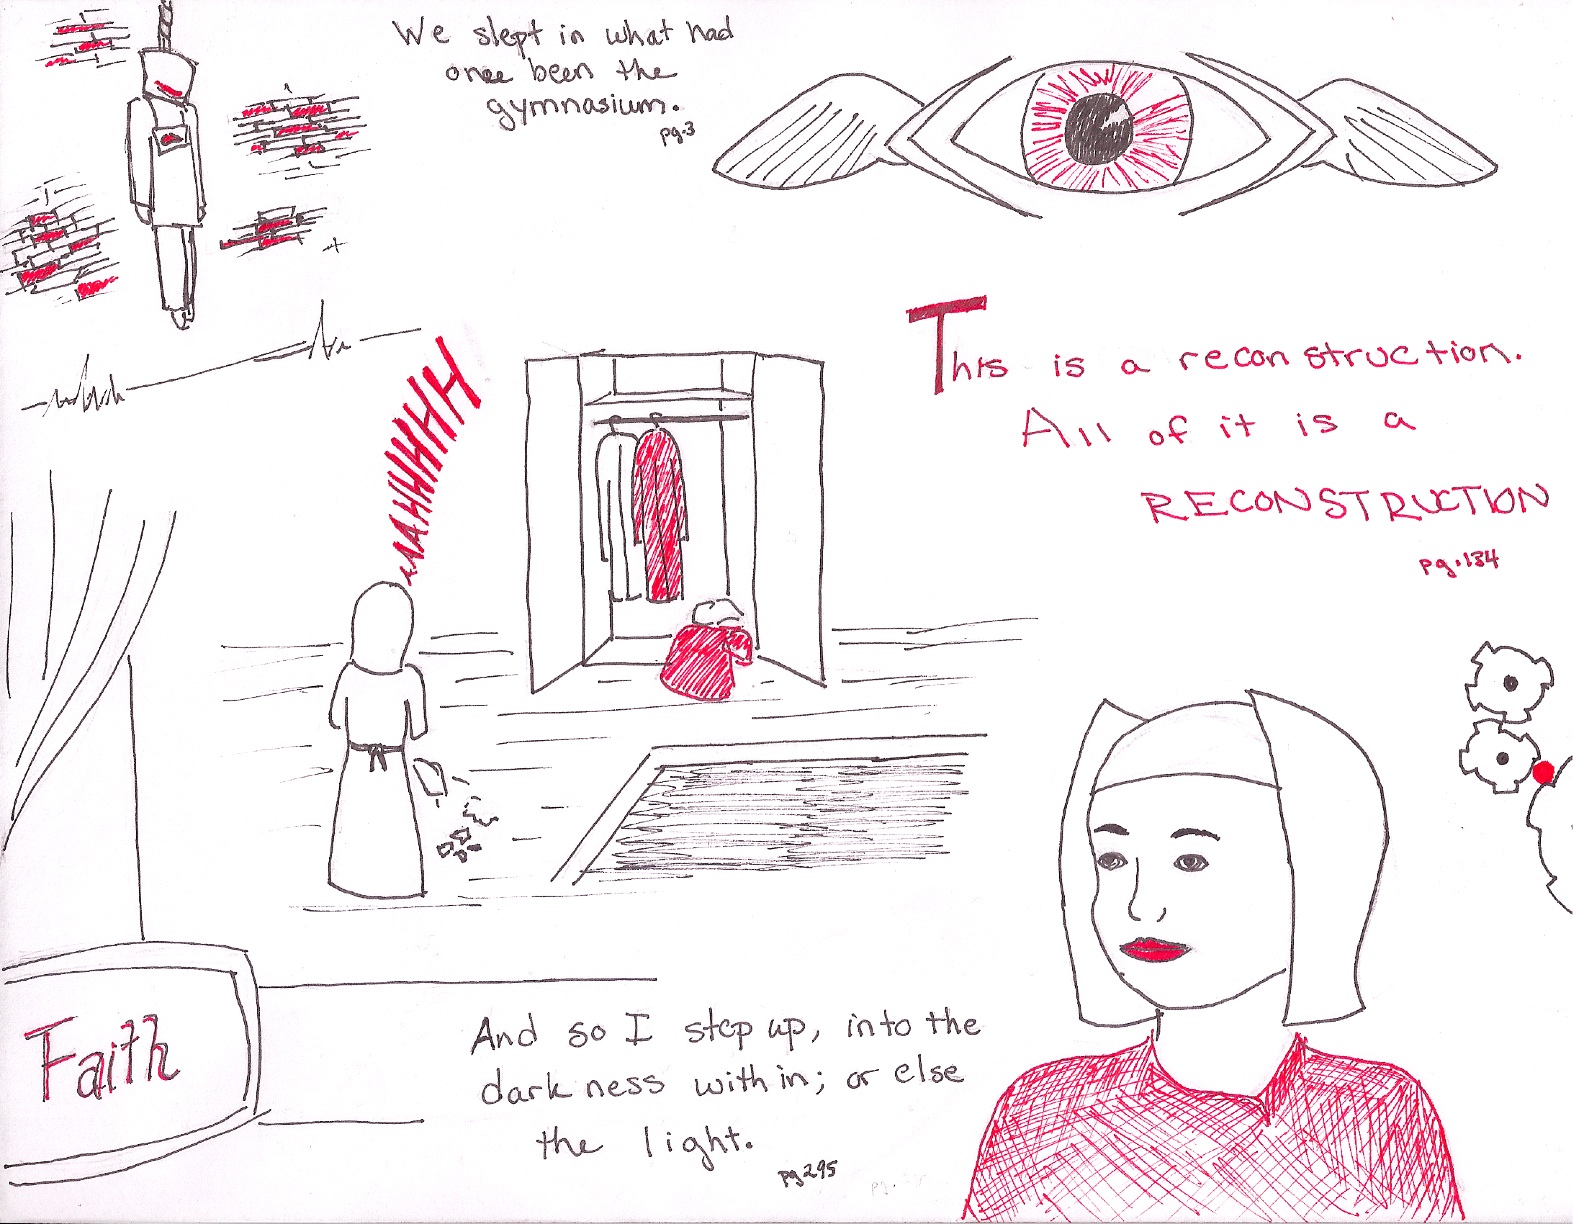 We slept in what had
once been the
gymnasium.
pg.3
This is a reconstruction.
All of it is a
RECONSTRUCTION
pg.134
AAAHHHHHH
Faith
And so I step up, into the
darkness within; or else
the light.
pg 295